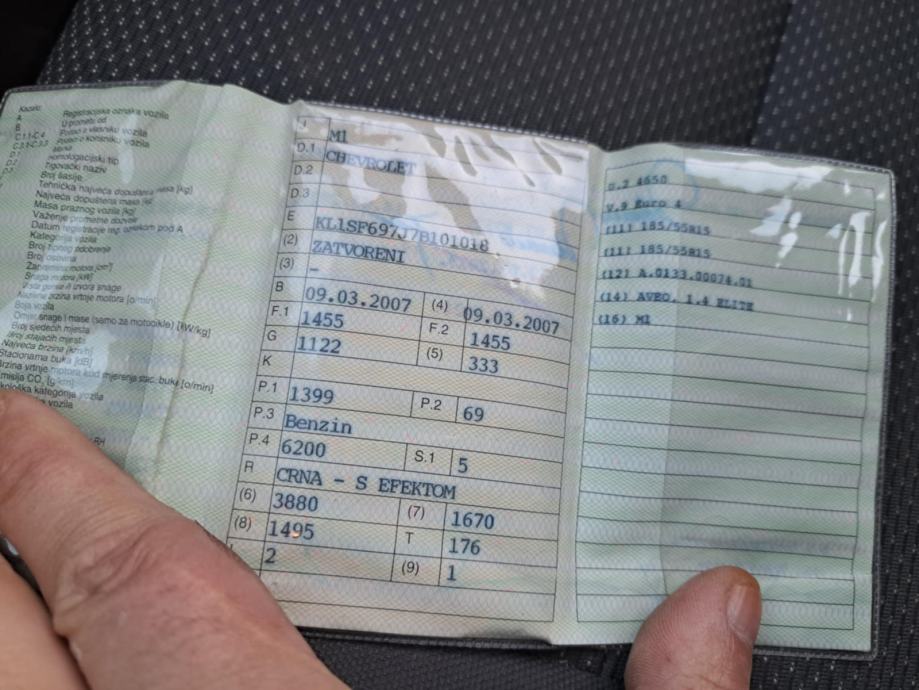 A Registracijska oznaka vozila
B U prometu od
C.1.1-C.4 Podaci o vlasniku vozila
Podaci o korisniku vozila
Marka
Homologacijski tip
Trgovački naziv
Broj šasije
Tehnička najveća dopuštena masa [kg]
Najveća dopuštena masa [kg]
Masa praznog vozila [kg]
Važenje prometne dozvole
Datum registracije
pod A
Kategorija vozila
Broj tipnog odobrenja
Broj osovina
motora [cm³]
Snaga motora [kW]
Vrsta goriva ili izvora snage
Nazivna brzina vrtnje motora [o/min]
Boja vozila
Omjer snage i mase (samo za motocikle) [kW/kg]
Broj sjedećih mjesta
Broj stajaćih mjesta
Najveća brzina [km/h]
Stacionarna buka [dB]
Brzina vrtnje motora kod mjerenja stac. buke [o/min]
CO₂ [g/km]
kategorija vozila
vozila
RH
J M1
D.1 CHEVROLET
D.2
D.3
E KL1SF697J7B101018
(2) ZATVORENI
(3) –
B 09.03.2007 (4) 09.03.2007
F.1 1455 F.2 1455
G 1122 (5) 333
K
P.1 1399 P.2 69
P.3 Benzin
P.4 6200 S.1 5
R CRNA - S EFEKTOM
(6) 3880 (7) 1670
(8) 1495 T 176
L 2 (9) 1
U.2 4650
V.9 Euro 4
(11) 185/55R15
(11) 185/55R15
(12) A.0133.00074.01
(14) AVEO, 1.4 ELITE
(16) M1